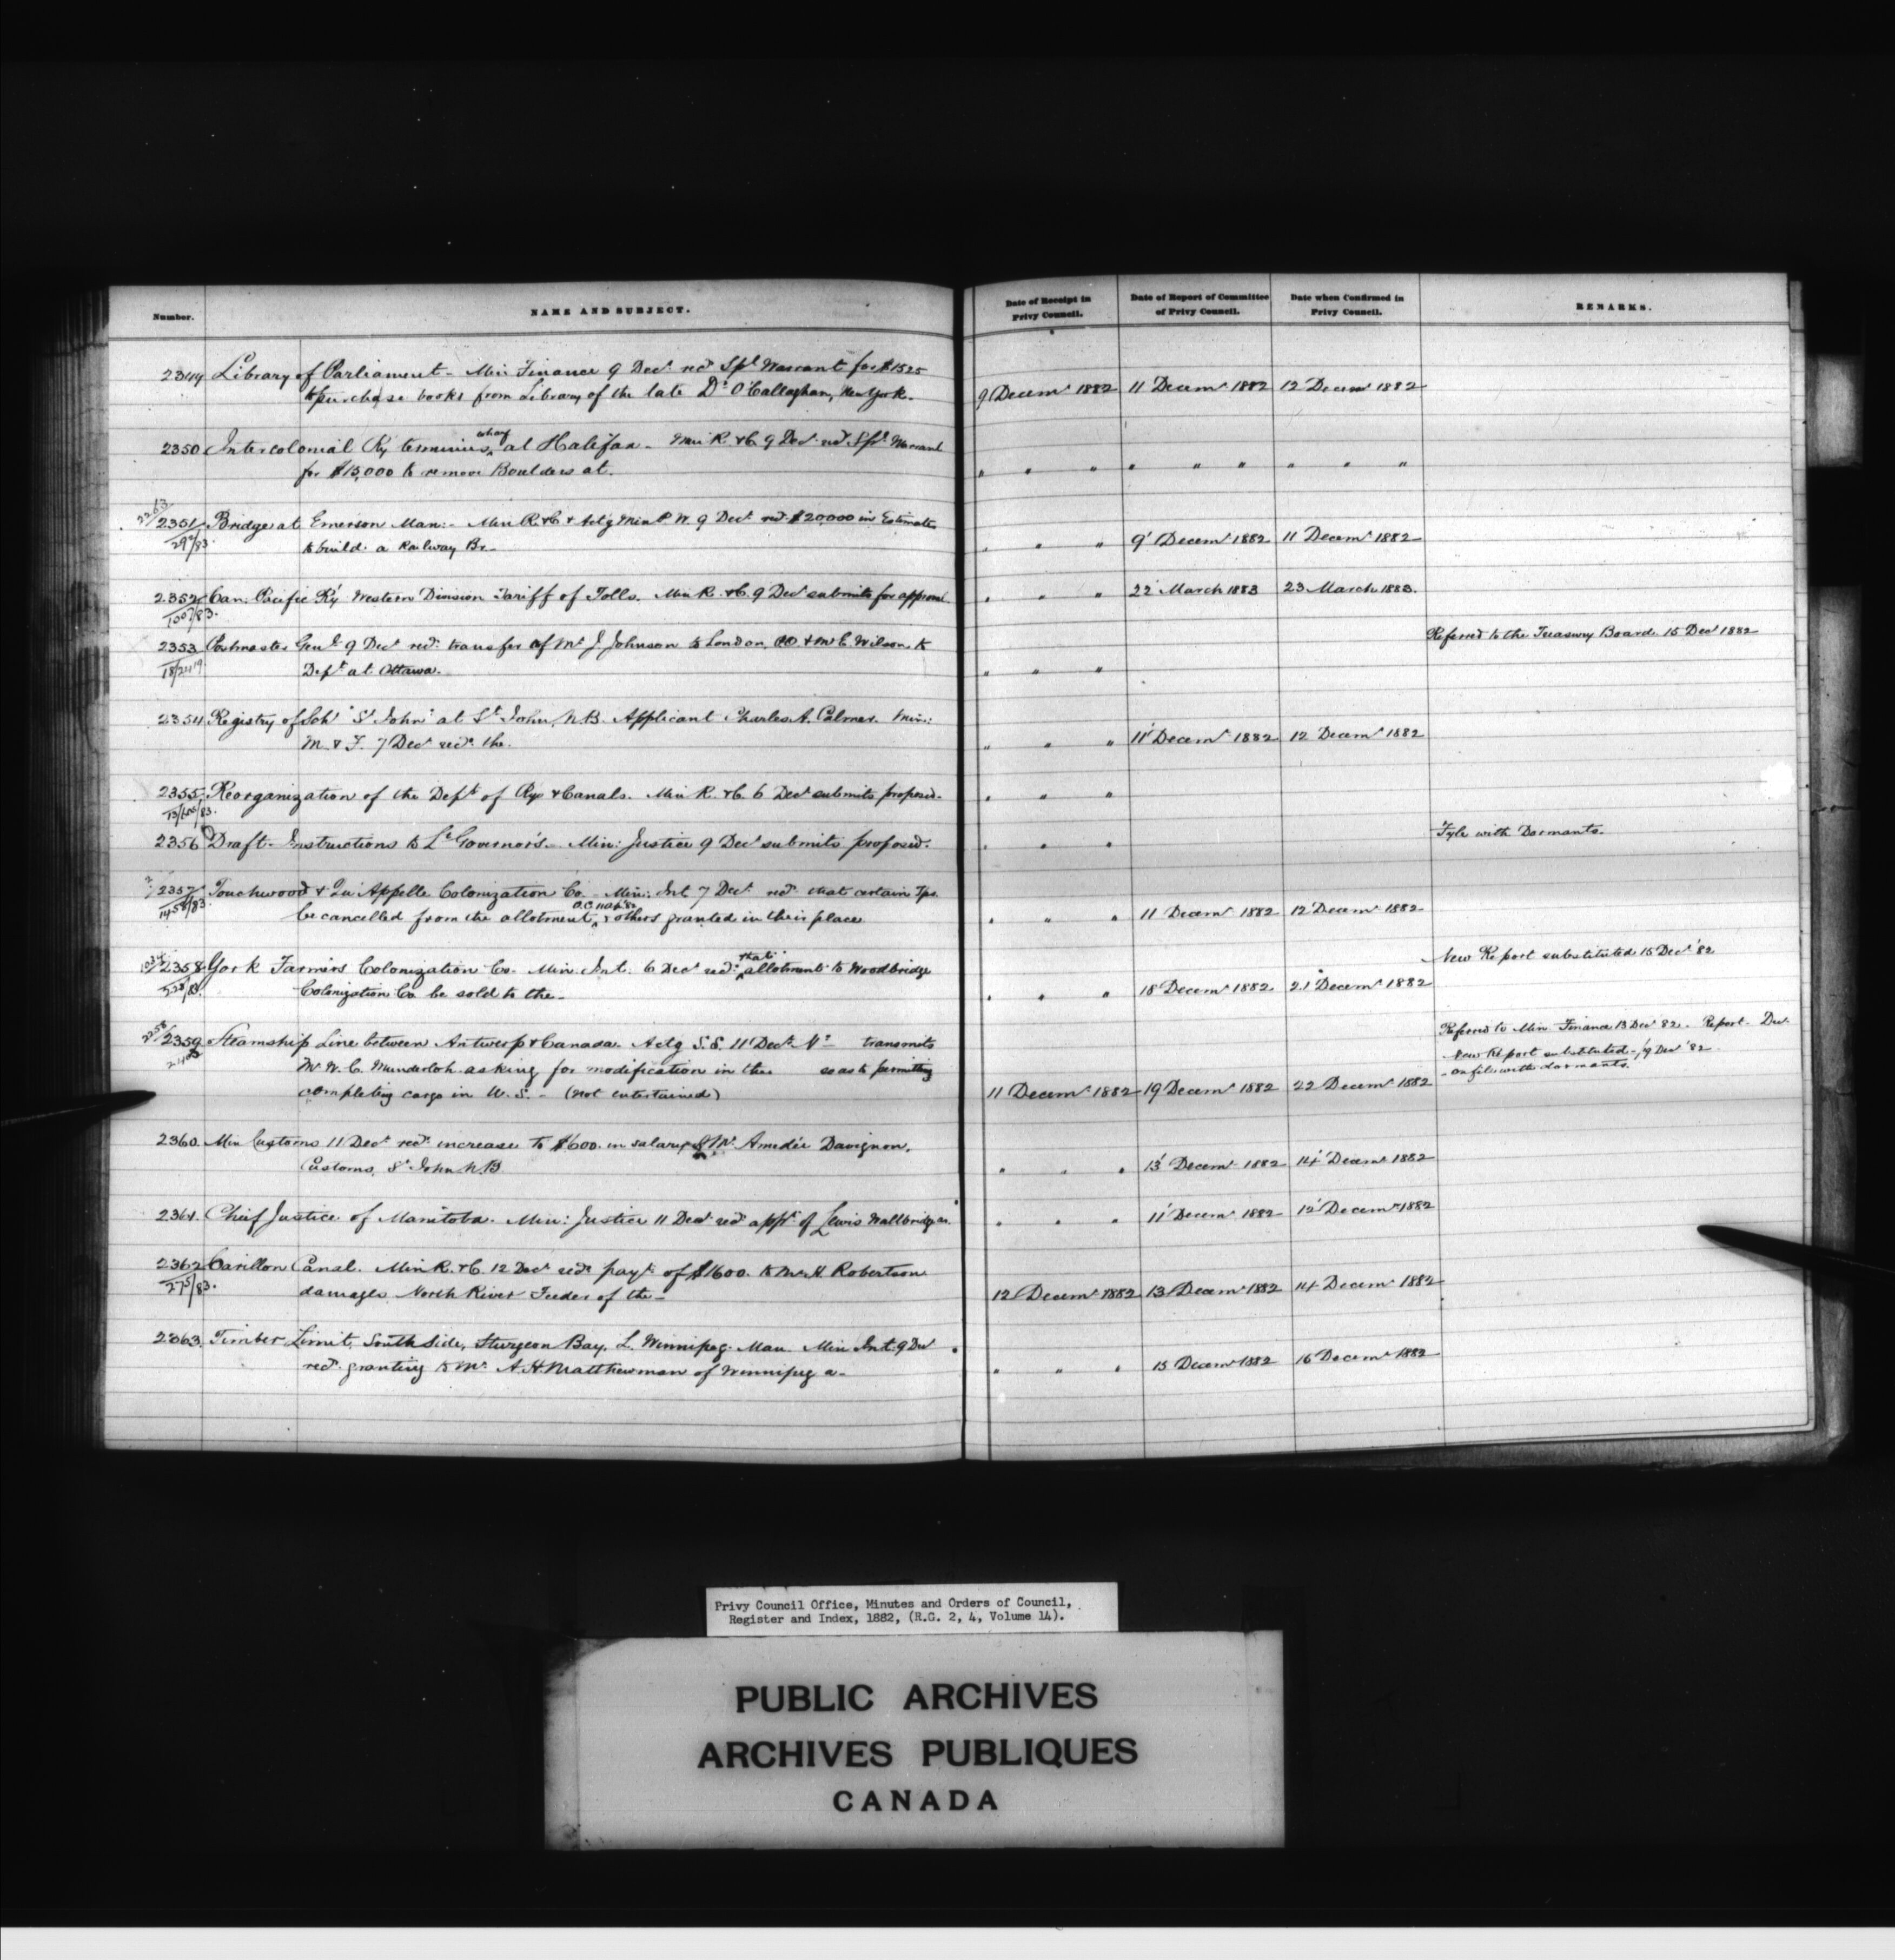 Number.
NAME AND SUBJECT.
Date of Receipt in
Privy Council.
Date of Report of Committee
of Privy Council.
Date when Confirmed in
Privy Council.
REMARKS.
2349 Library of Parliament - Min Finance 9 Decr recd Spl Warrant for $1525
to purchase books from Library of the late Dr O'Callaghan, New York.
9 Decemr 1882 11 Decemr 1882 12 Decemr 1882
2350 Intercolonial Ry terminus wharf at Halifax - Min R. & C. 9 Decr recd Spl Warrant
for $15,000 to remove Boulders at.
" " " " " " " " "
2263/2351 Bridge at Emerson Man: - Min R. & C & Actg Min P. W. 9 Decr recd $20,000 in Estimates
to build a Railway Br. -
" " " 9 Decemr 1882 11 Decemr 1882
2352 Can. Pacific Ry Western Division Tariff of Tolls. Min R. & C. 9 Decr submits for approval
" " " 22 March 1883 23 March 1883.
2353 Postmaster Genl 9 Decr recd transfer of Mr J. Johnson to London, & Mr E. Wilson to
18/2419
Dept at Ottawa.
" " "
Referred to the Treasury Board 15 Decr 1882
2354 Registry of Schr "St John" at St John, N.B. Applicant Charles A. Palmer. Min:
M. & F. 7 Decr recds the.
" " " 11 Decemr 1882 12 Decemr 1882
2355 Reorganization of the Dept of Rys & Canals. Min R. & C. 6 Decr submits proposed -
" " "
2356 Draft Instructions to Lt Governors. - Min: Justice 9 Decr submits proposed.
" " "
Fyle with Dormants.
2357 Touchwood & Qu'Appelle Colonization Co - Min: Int 7 Decr recd that certain Tps.
1458/83
be cancelled from the allotment & others granted in their place
" " " 11 Decemr 1882 12 Decemr 1882
2358 York Farmers Colonization Co. Min. Int. 6 Decr recds that allotment to Woodbridge
Colonization Co be sold to the -
" " " 18 Decemr 1882 21 Decemr 1882
New Report substituted 15 Decr '82
2359 Steamship Line between Antwerp & Canada. Actg S.S. 11 Decr No transmits
Mr W. C. Munderloh asking for modification in the so as to permitting
completing cargo in U.S. - (not entertained)
11 Decemr 1882 19 Decemr 1882 22 Decemr 1882
Referred to Min Finance 13 Decr 82. Report Dec.
New Report substituted - 19 Decr '82
- on file with dormants.
2360. Min Customs 11 Decr recds increase to $600. in salary of Mr Amedée Davignon,
Customs, St John N.B
" " " 13 Decemr 1882 14 Decemr 1882
2361. Chief Justice of Manitoba. Min: Justice 11 Decr recds appt of Lewis Wallbridge as.
" " " 11 Decemr 1882 12 Decemr 1882
2362 Carillon Canal. Min R. & C. 12 Decr recds payt of $1600. to Mr H. Robertson
275/83.
damages North River Feeder of the -
12 Decemr 1882 13 Decemr 1882 14 Decemr 1882
2363. Timber Limit, South Side, Sturgeon Bay, L. Winnipeg. Man. Min Int. 9 Decr
recds granting to Mr A. H. Matthewman of Winnipeg a -
" " " 15 Decemr 1882 16 Decemr 1882
Privy Council Office, Minutes and Orders of Council,
Register and Index, 1882, (R.G. 2, 4, Volume 14).
PUBLIC ARCHIVES
ARCHIVES PUBLIQUES
CANADA